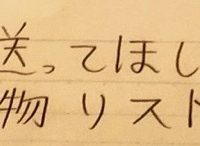 送ってほし
物リスト